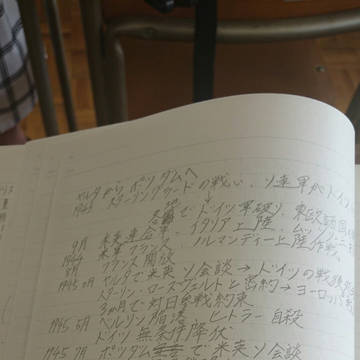 ヤルタからポツダムへ
1943 スターリングラードの戦い、ソ連軍がドイツ
でドイツ軍破り、東欧諸国
9月 米英連合軍、イタリア上陸、ムッソリーニ
1944 米軍フランス、ノルマンディー上陸作戦。
8月 フランス開放
1945.2月 ヤルタで米英ソ会談→ドイツの戦後
スターリン・ローズヴェルトと密約→ヨーロッパ
3ヵ月で対日参戦約束
1945.5月 ベルリン陥落 ヒトラー自殺
ドイツ無条件降伏
1945.7月 ポツダムで米英ソ会談